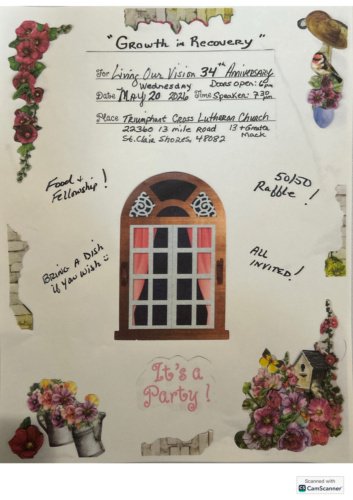 "Growth in Recovery"
For Living Our Vision 34th Anniversary
Wednesday Doors open: 6pm
Date May 20 2026 Time Speaker: 7:30 pm
Place Triumphant Cross Lutheran Church
22360 13 mile Road 13 + Gratiot
St. Clair Shores, 48082 Mack
Food &
Fellowship!
50/50
Raffle!
Bring A Dish
if you Wish
All
Invited!
It's a
Party!
Scanned with
CamScanner